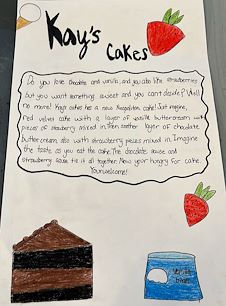 Kay's
Cakes
Do you love chocolate and vanilla, and you also like strawberries
but you want something sweet and you cant decide? Well
no more! Kays cakes has a new Neapolitan cake! Just imagine,
red velvet cake with a layer of vanilla buttercream with
pieces of strawberry mixed in. Then another layer of chocolate
buttercream also with strawberry pieces mixed in. Imagine
the taste as you eat the cake. The chocolate sauce and
strawberry sauce tie it all together. Now your hungry for cake.
Your welcome!